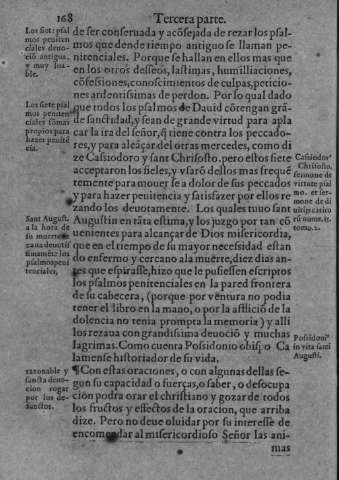 168 Tercera parte.
Los siete psal
mos peniten
ciales deuo-
ció antigua,
y muy loa-
ble.
de ser conseruada y acõsejada de rezar los psal
mos que dende riempo antiguo se llaman pe-
nitenciales. Porque se hallan en ellos mas que
en los otros desseos, lastimas, humilliaciones,
cõfessiones, conoscimientos de culpas, peticio-
nes ardentissimas de perdon. Por lo qual dado
Los siete psal
mos peniten
ciales sõ mas
propios para
hazer penitẽ
cia.
que todos los psalmos de Dauid cõtengan grã
de sanctidad, y sean de grande virtud para apla
car la ira del señor, q̃ tiene contra los peccado-
res, y para alcãçar del otras mercedes, como di
ze Cassiodoro y sant Chrisosto. pero estos siete
acceptaron los fieles, y vsarõ dellos mas frequẽ
temente para mouer se a dolor de sus peccados
y para hazer penitencia y satisfazer por ellos re
zando los deuotamente. Los quales tuuo sant
Cassiodor⁹
Chrisosto.
sermone de
virtute psal
mo. et ser-
mone de di
uitijs caico
rũ nume.11.
tomo.2.
Sant August.
a la hora de
su muerte re
zaua deuotis
simamẽte los
psalmos peni
tenciales,
Augustin en tãta estima, y los juzgo por tan cõ
uenientes para alcançar de Dios misericordia,
que en el tiempo de su mayor necessidad estan
do enfermo y cercano ala muerte, diez dias an-
tes que espirasse, hizo que le pusiessen escriptos
los psalmos penitenciales en la pared frontera
de su cabecera, (porque por ventura no podia
tener el libro en la mano, o por la afflició de la
dolencia no tenia prompta la memoria) y alli
los rezaua con grandissima deuoció y muchas
lagrimas. Como cuenta Possidonio obispo Ca
lamense historiador de su vida.
Possidoni⁹
in vita sant
Augusti.
razonable y
sancta deuo-
cion rogar
por los de-
functos.
¶ Con estas oraciones, o con algunas dellas se-
gun su capacidad o fuerças, o saber, o desocupa
cion podra orar el christiano y gozar de todos
los fructos y effectos de la oracion, que arriba
dize. Pero no deue oluidar por su interesse de
encomendar al misericordioso Señor las ani-
mas